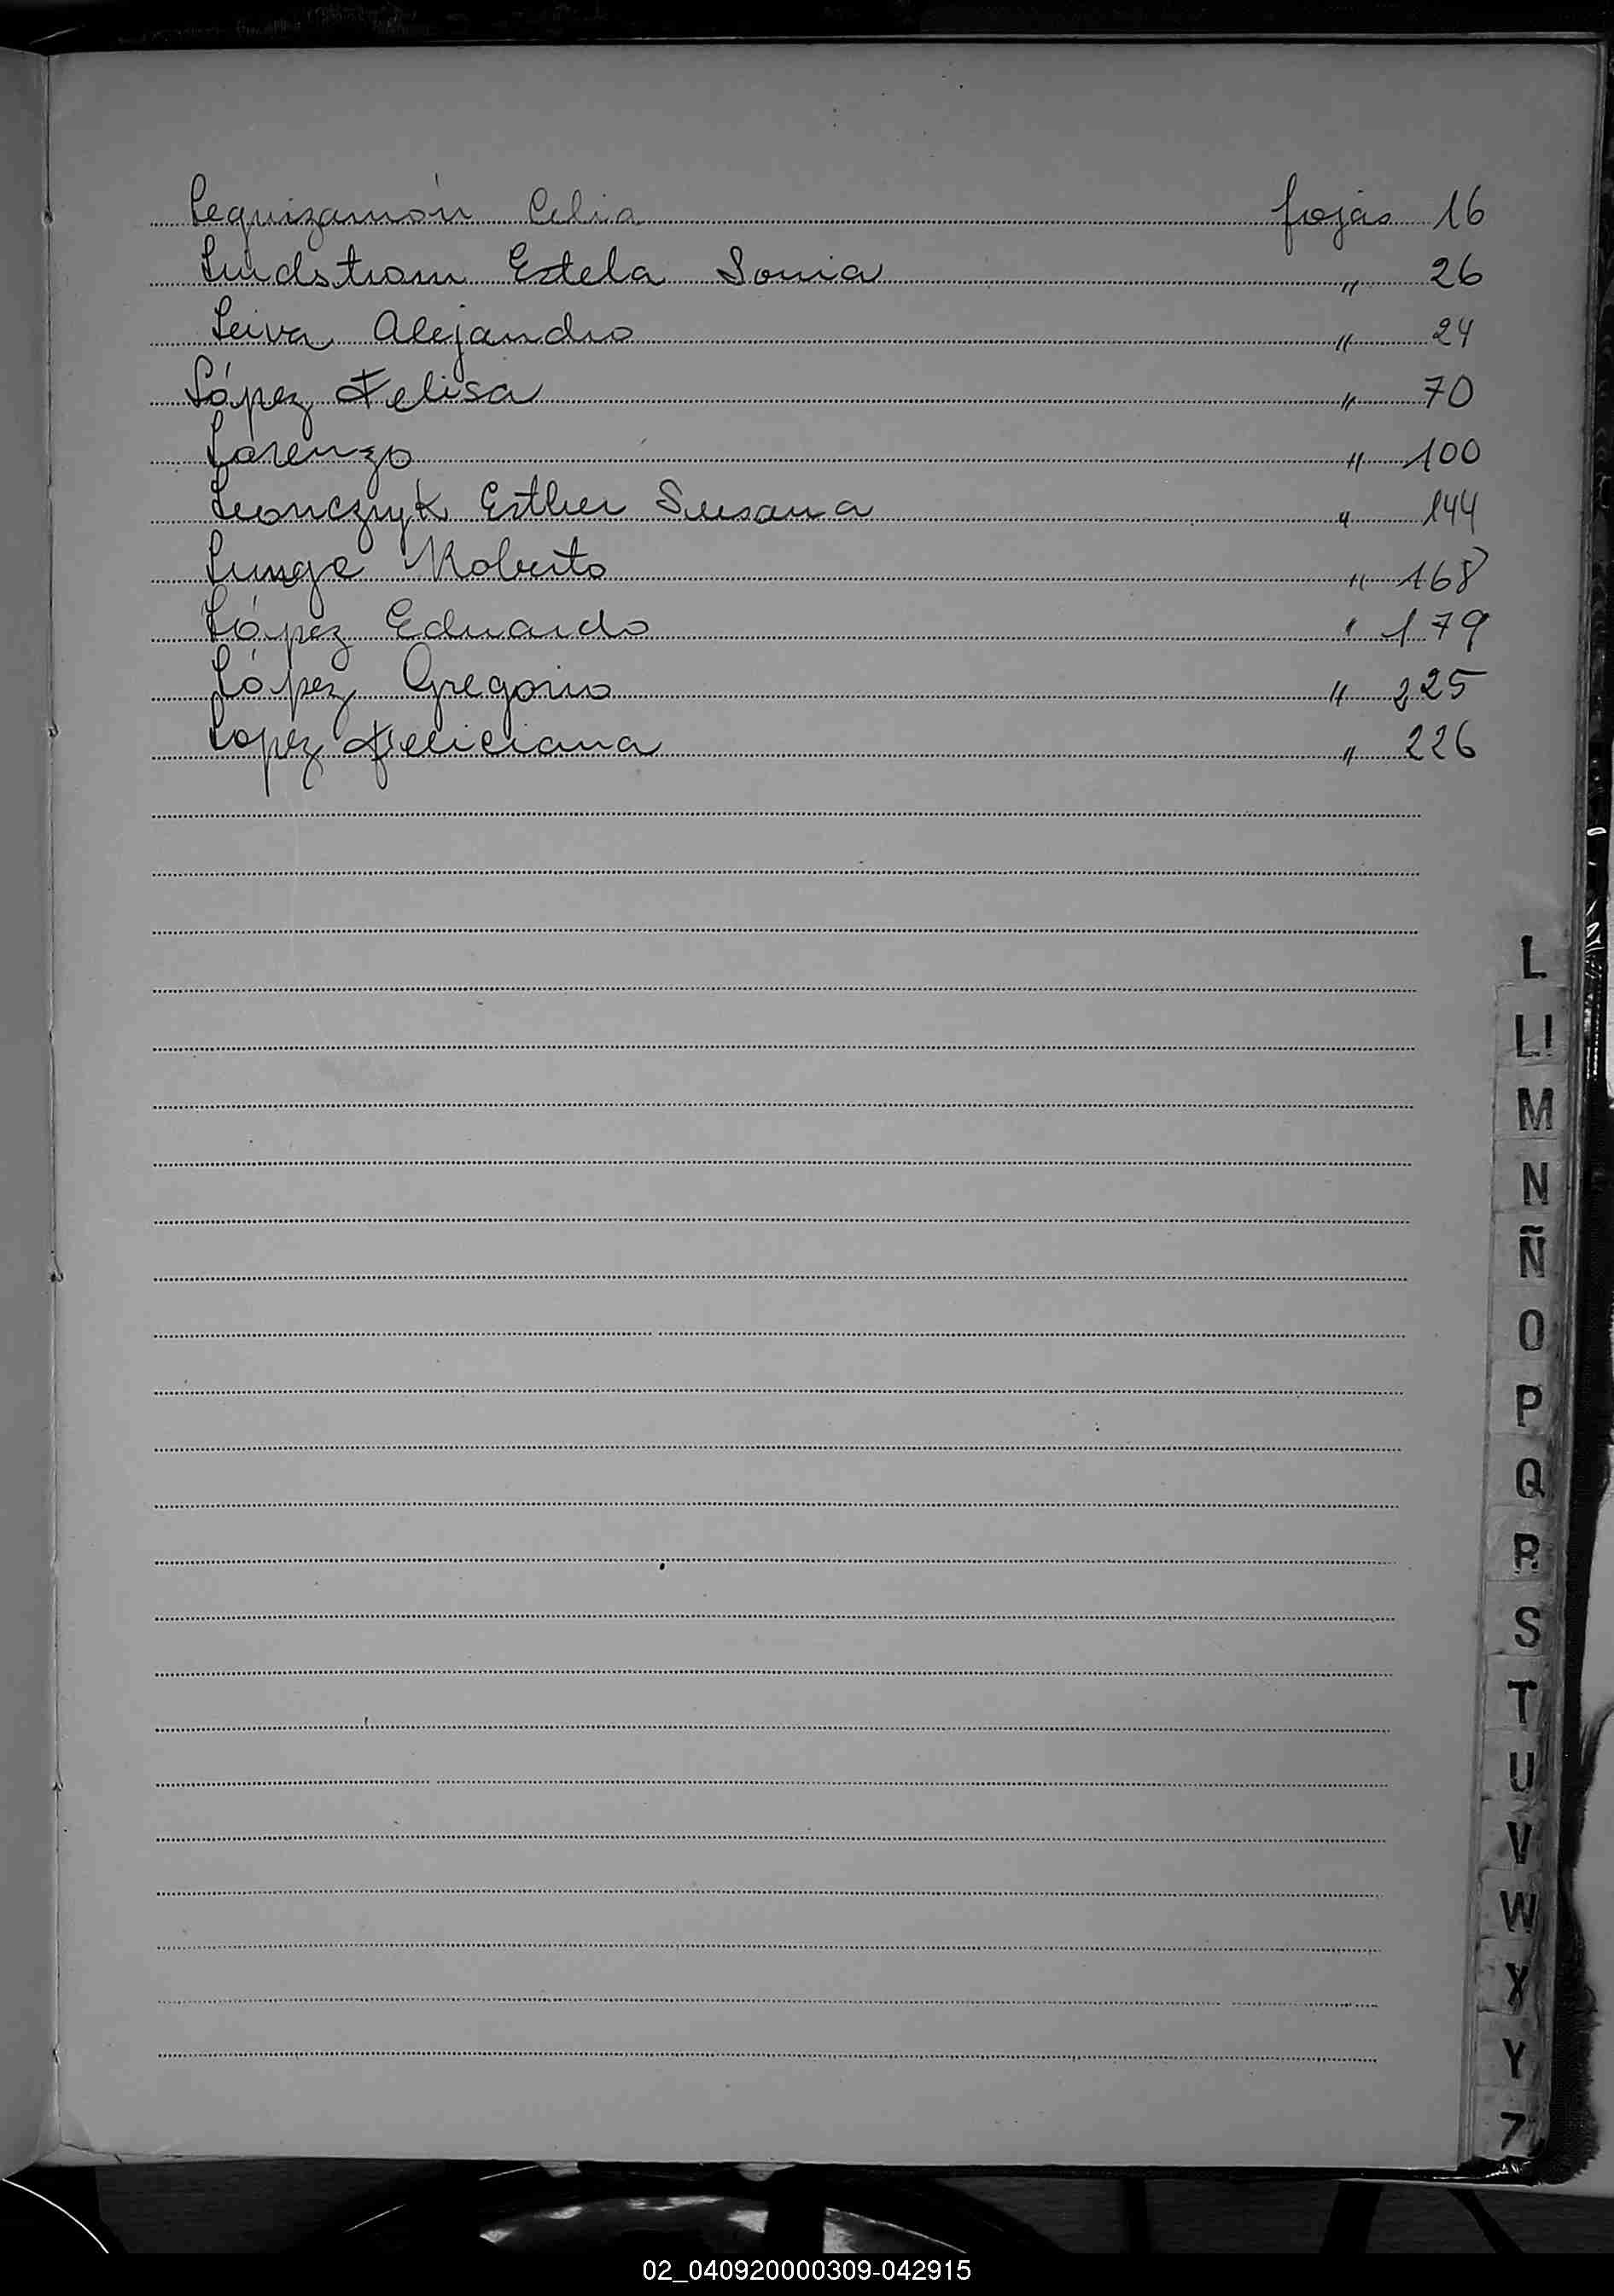 Leguizamón Celia fojas 16
Lindstrom Estela Sonia " 26
Leiva Alejandro " 24
López Felisa " 70
Lorenzo " 100
Leonczyk Esther Susana " 144
Lunge Roberto " 168
López Eduardo " 179
López Gregorio " 225
Lopez Feliciana " 226
L
Ll
M
N
Ñ
O
P
Q
R
S
T
U
V
W
X
Y
Z
02_040920000309-042915